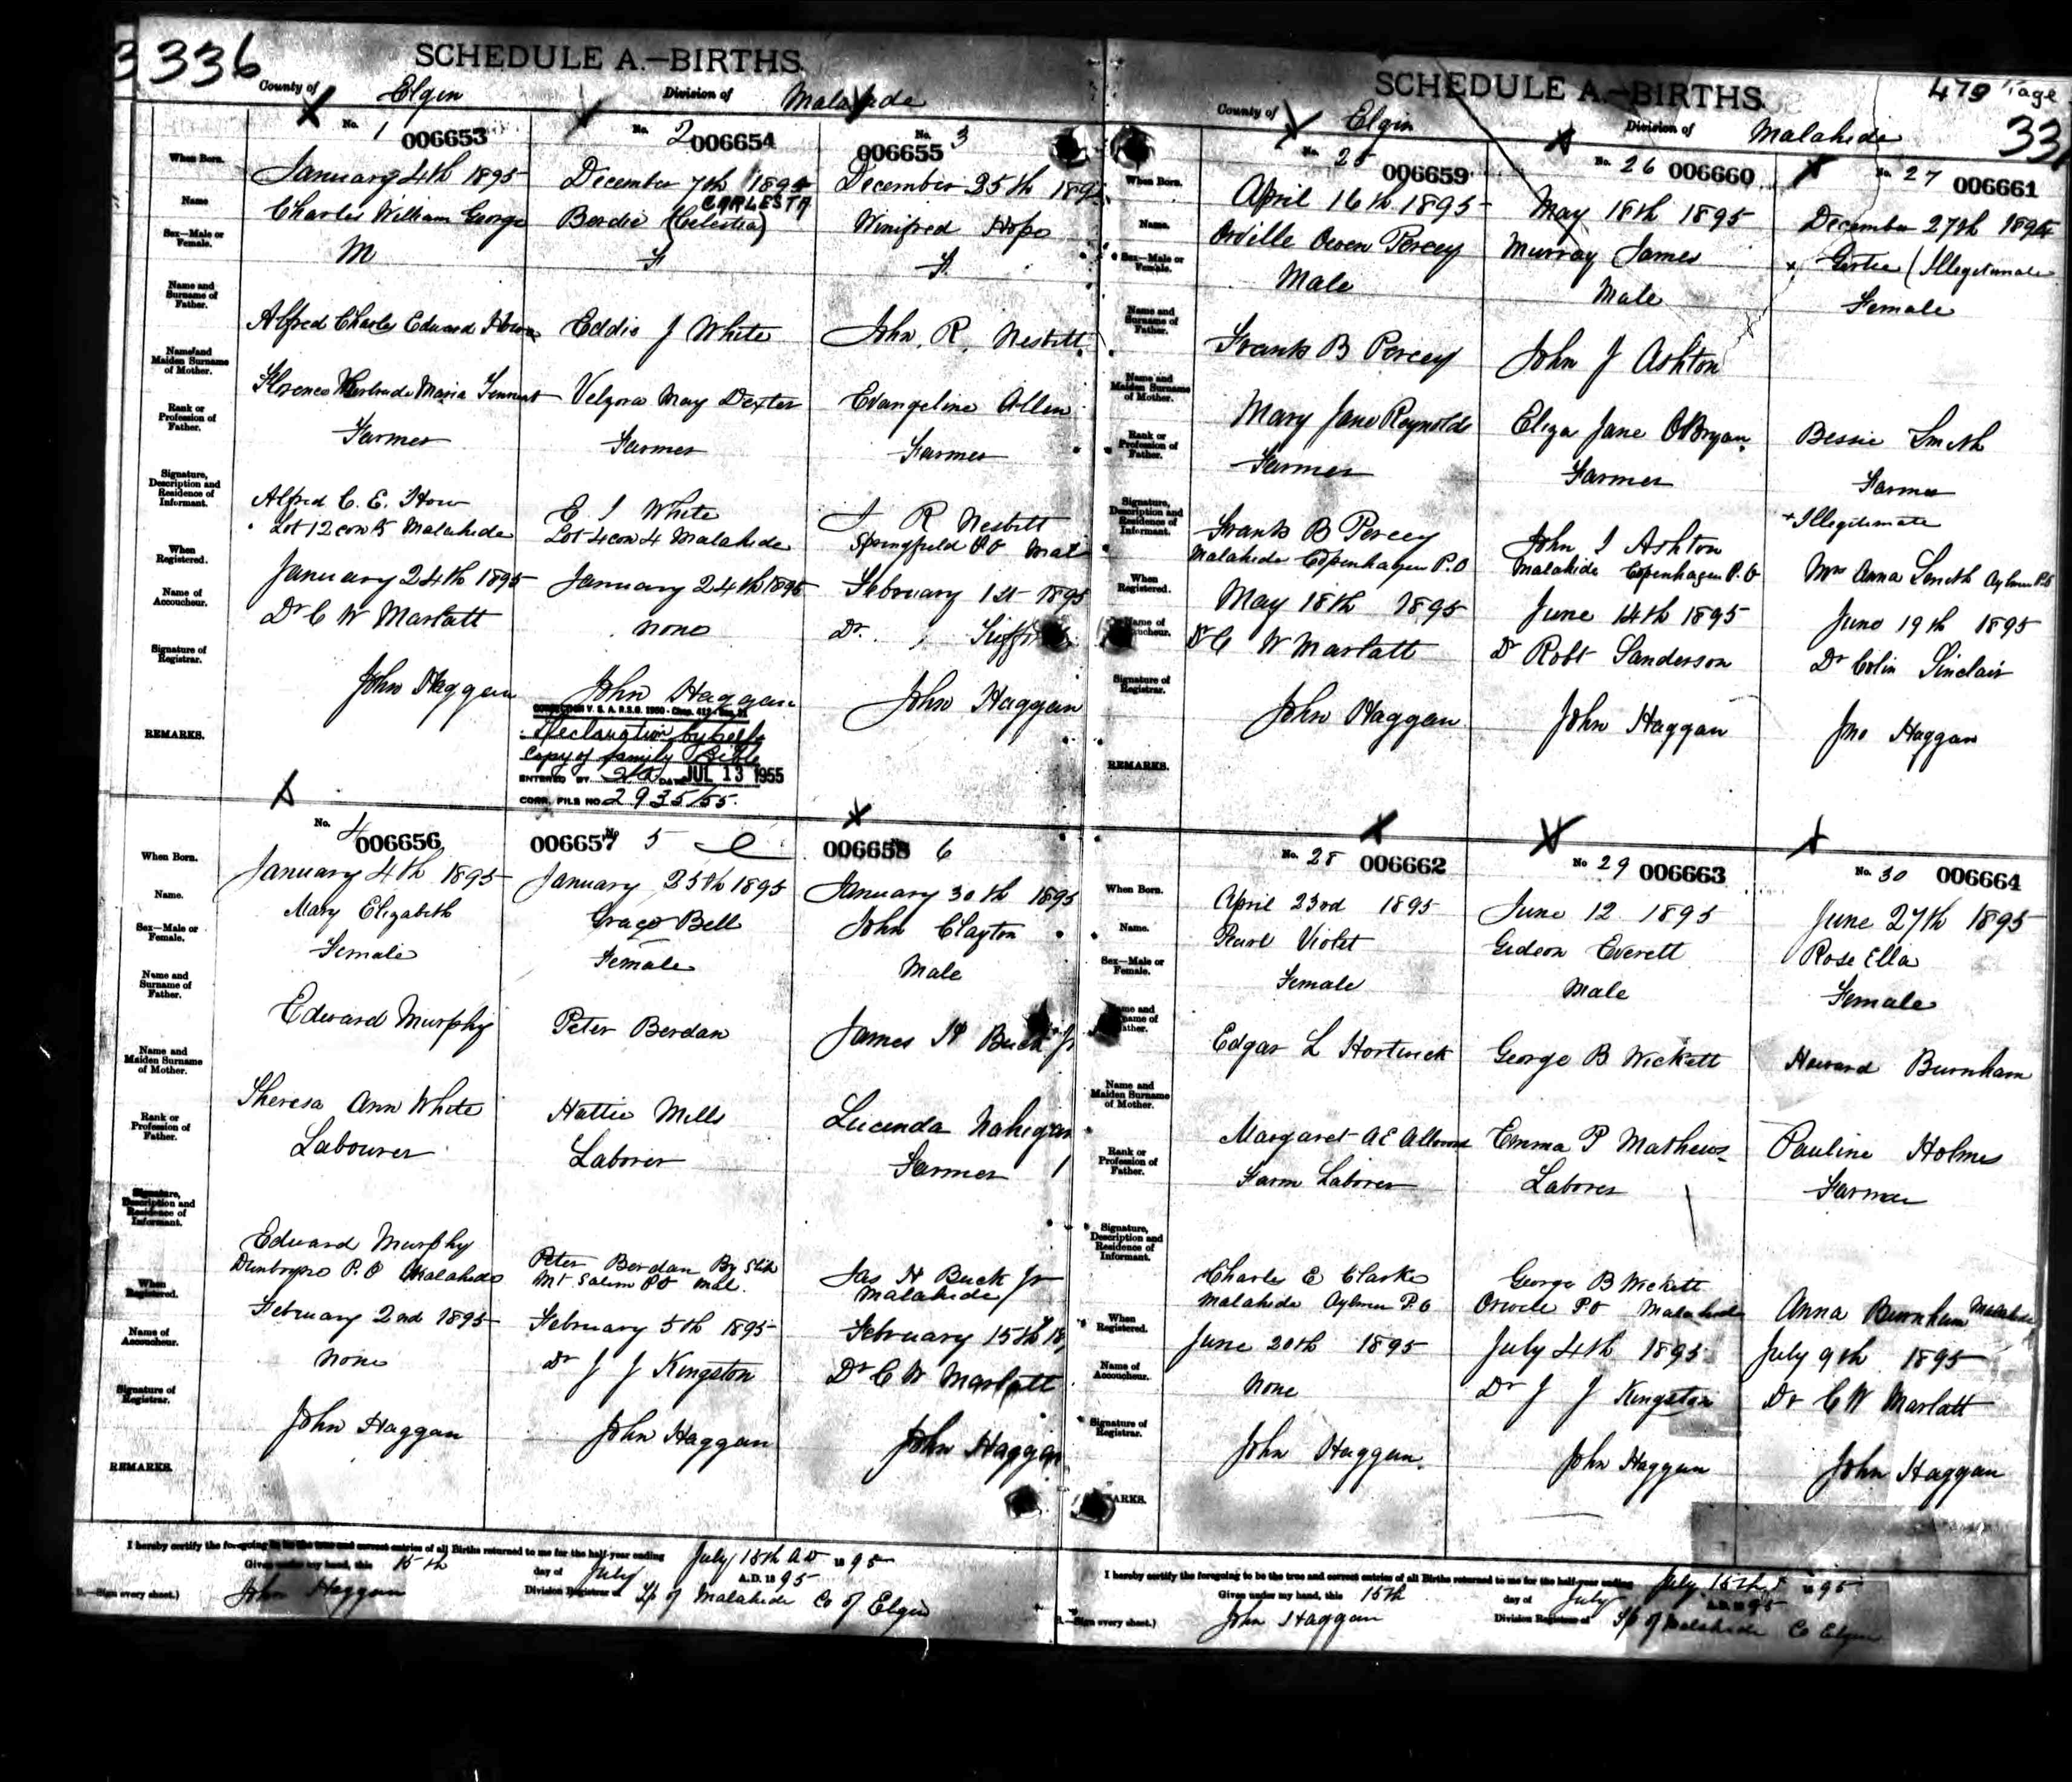 336
SCHEDULE A.—BIRTHS.
County of Elgin Division of Malahide
No. 1 006653
When Born. January 4th 1895
Name Charles William George
Sex—Male or Female. M
Name and Surname of Father. Alfred Charles Edward How
Name and Maiden Surname of Mother. Florence Gertrude Maria
Rank or Profession of Father. Farmer
Signature, Description and Residence of Informant. Alfred C. E. How
Lot 12 con 5 Malahide
When Registered. January 24th 1895
Name of Accoucheur. Dr C W Marlatt
Signature of Registrar. John Haggan
REMARKS.
No. 2 006654
December 7th 1894
CARLESTA
Berdie (Celestia)
F
Eddie J White
Velzora May Dexter
Farmer
E. J White
Lot 4 con 4 Malahide
January 24th 1895
none
John Haggan
CORRECTION V. S. A. R.S.O. 1950 - Chap. 412 - Sec.
Declaration by self &
copy of family Bible
ENTERED BY DATE JUL 13 1955
CORR. FILE NO 2935/55.
No. 3 006655
December 25th 189
Winifred Hope
F.
John. R. Nesbitt
Evangeline Allen
Farmer
J R Nesbitt
Springfield PO Mal
February 1st 1895
Dr.
John Haggan
No. 4 006656
When Born. January 4th 1895
Name. Mary Elizabeth
Sex—Male or Female. Female
Name and Surname of Father. Edward Murphy
Name and Maiden Surname of Mother. Theresa Ann White
Rank or Profession of Father. Labourer
Signature, Description and Residence of Informant. Edward Murphy
P.O Malahide
When Registered. February 2nd 1895
Name of Accoucheur. none
Signature of Registrar. John Haggan
REMARKS.
006657 No 5
January 25th 1895
Grace Bell
Female
Peter Berdan
Hattie Mills
Laborer
Peter Berdan By
Mt Salem PO Mal.
February 5th 1895
Dr J J Kingston
John Haggan
006658 6
January 30th 1895
John Clayton
Male
James H Buck Jr
Lucinda
Farmer
Jas H Buck Jr
Malahide
February 15th 18
Dr C W Marlatt
John Haggan
I hereby certify the foregoing to be the true and correct entries of all Births returned to me for the half-year ending July 15th A D 1895
Given under my hand, this 15th day of July A.D. 1895
—Sign every sheet.) John Haggan Division Registrar of Tp of Malahide Co of Elgin
479 Page
33
SCHEDULE A.—BIRTHS.
County of Elgin Division of Malahide
No. 25 006659
When Born. April 16th 1895
Name. Orville Owen Percey
Sex—Male or Female. Male
Name and Surname of Father. Frank B Percey
Name and Maiden Surname of Mother. Mary Jane Reynolds
Rank or Profession of Father. Farmer
Signature, Description and Residence of Informant. Frank B Percey
Malahide Copenhagen P.O
When Registered. May 18th 1895
Name of Accoucheur. Dr C W Marlatt
Signature of Registrar. John Haggan
REMARKS.
No. 26 006660
May 18th 1895
Murray James
Male
John J Ashton
Eliza Jane OBryan
Farmer
John J Ashton
Malahide Copenhagen P.O
June 14th 1895
Dr Robt Sanderson
John Haggan
No. 27 006661
December 27th 1894
x Gertie (Illegitimate
Female
Bessie Smith
Farmer
+ Illegitimate
Mrs Anna Smith Aylmer PO
June 19th 1895
Dr Colin Sinclair
Jno Haggan
No. 28 006662
When Born. April 23rd 1895
Name. Pearl Violet
Sex—Male or Female. Female
Name and Surname of Father. Edgar L Hortwick
Name and Maiden Surname of Mother. Margaret A E
Rank or Profession of Father. Farm Laborer
Signature, Description and Residence of Informant. Charles E Clarke
Malahide Aylmer P.O
When Registered. June 20th 1895
Name of Accoucheur. None
Signature of Registrar. John Haggan.
REMARKS.
No 29 006663
June 12 1895
Gideon Everett
Male
George B Wickett
Emma P Mathews
Laborer
George B Wickett
Orwell PO Malahide
July 4th 1895
Dr J J Kingston
John Haggan
No. 30 006664
June 27th 1895
Rose Ella
Female
Howard Burnham
Pauline Holmes
Farmer
Anna Burnham Malahide
July 9th 1895
Dr C W Marlatt
John Haggan
I hereby certify the foregoing to be the true and correct entries of all Births returned to me for the half-year ending July 15th 1895
Given under my hand, this 15th day of July A.D. 1895
—Sign every sheet.) John Haggan Division Registrar of Tp of Malahide Co Elgin